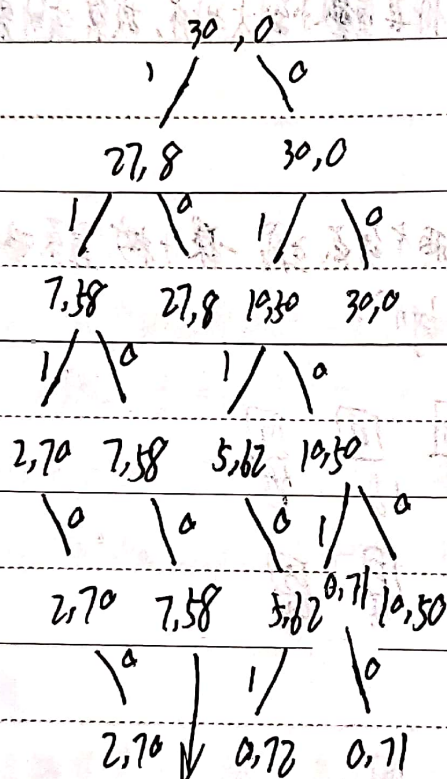 30,0
1 0
27,8 30,0
1 0 1 0
7,58 27,8 10,50 30,0
1 0 1 0
2,70 7,58 5,62 10,50
0 0 0 1 0
2,70 7,58 5,62 0,71 10,50
0 1 0
2,70 0,72 0,71